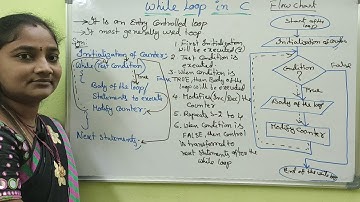 While Loop in C
→ It is an Entry Controlled loop
→ It most generally used loop
Syn:
Initialization of Counter;
While (Test Condition)
{
True
Body of the loop/
Statements to execute
Modify Counter;
}
False
Next Statements;
1. First Initialization
will be executed
2. Test Condition is
executed
3. When Condition is
TRUE, then Body of the
loop will be executed
4. Modify (Inc/Dec) the
Counter
5. Repeats 3-2 to 4
6. When Condition is
FALSE, then Control
is transferred to
next Statements after the
while loop
Flow Chart
Start of the
loop
Initialization of Counter
Condition
?
False
True
Body of the loop
Modify Counter
End of the while loop